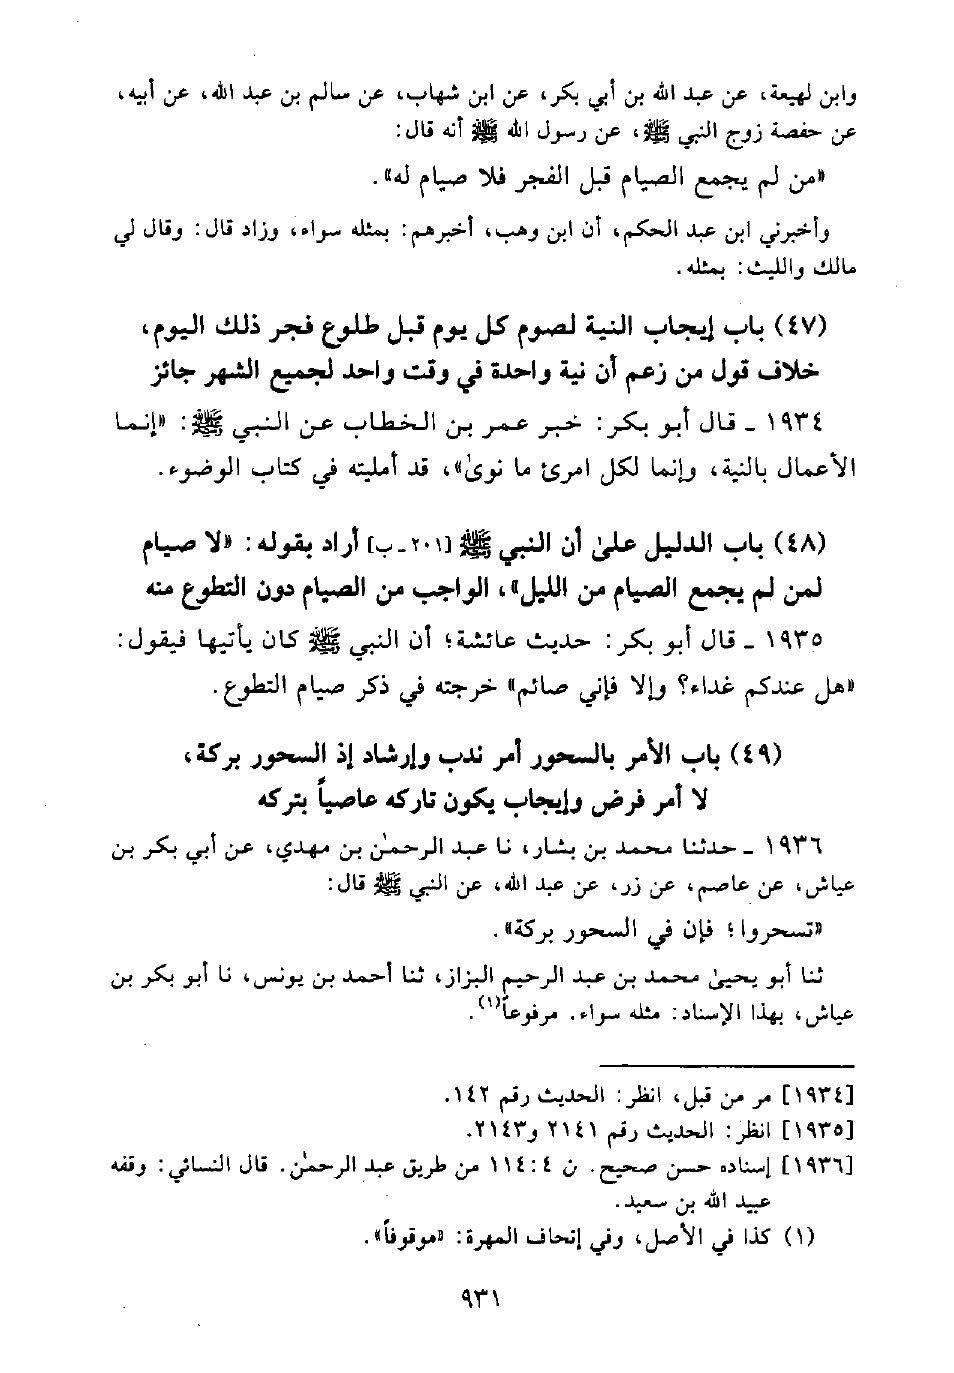 وابن لهيعة، عن عبد الله بن أبي بكر، عن ابن شهاب، عن سالم بن عبد الله، عن أبيه،
عن حفصة زوج النبي ﷺ، عن رسول الله ﷺ أنه قال:
«من لم يجمع الصيام قبل الفجر فلا صيام له».
وأخبرني ابن عبد الحكم، أن ابن وهب، أخبرهم: بمثله سواء، وزاد قال: وقال لي
مالك والليث: بمثله.
(٤٧) باب إيجاب النية لصوم كل يوم قبل طلوع فجر ذلك اليوم،
خلاف قول من زعم أن نية واحدة في وقت واحد لجميع الشهر جائز
١٩٣٤ ـ قال أبو بكر: خبر عمر بن الخطاب عن النبي ﷺ: «إنما
الأعمال بالنية، وإنما لكل امرئ ما نوىٰ»، قد أمليته في كتاب الوضوء.
(٤٨) باب الدليل علىٰ أن النبي ﷺ [٢٠١ ـ ب] أراد بقوله: «لا صيام
لمن لم يجمع الصيام من الليل»، الواجب من الصيام دون التطوع منه
١٩٣٥ ـ قال أبو بكر: حديث عائشة؛ أن النبي ﷺ كان يأتيها فيقول:
«هل عندكم غداء؟ وإلا فإني صائم» خرجته في ذكر صيام التطوع.
(٤٩) باب الأمر بالسحور أمر ندب وإرشاد إذ السحور بركة،
لا أمر فرض وإيجاب يكون تاركه عاصياً بتركه
١٩٣٦ ـ حدثنا محمد بن بشار، نا عبد الرحمٰن بن مهدي، عن أبي بكر بن
عياش، عن عاصم، عن زر، عن عبد الله، عن النبي ﷺ قال:
«تسحروا؛ فإن في السحور بركة».
ثنا أبو يحيىٰ محمد بن عبد الرحيم البزاز، ثنا أحمد بن يونس، نا أبو بكر بن
عياش، بهذا الإسناد: مثله سواء. مرفوعاً(١).
[١٩٣٤] مر من قبل، انظر: الحديث رقم ١٤٢.
[١٩٣٥] انظر: الحديث رقم ٢١٤١ و٢١٤٣.
[١٩٣٦] إسناده حسن صحيح. ن ٤: ١١٤ من طريق عبد الرحمٰن. قال النسائي: وقفه
عبيد الله بن سعيد.
(١) كذا في الأصل، وفي إتحاف المهرة: «موقوفاً».
٩٣١